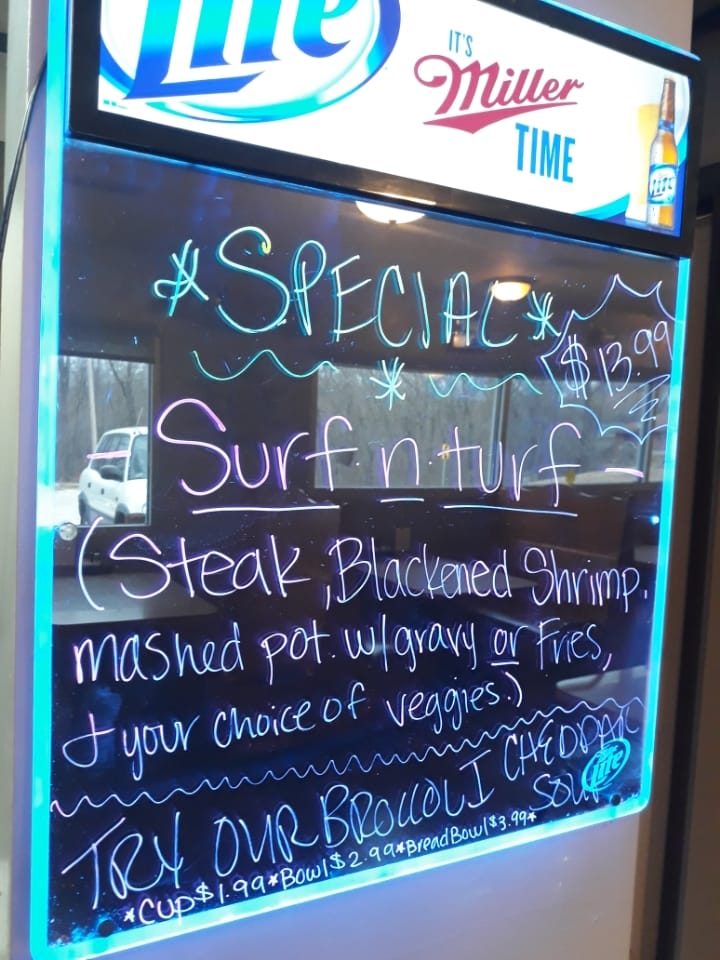 Lite
IT'S
Miller
TIME
Lite
*SPECIAL*
$13.99
-Surf·n·turf-
(Steak, Blackened Shrimp.
mashed pot. w/gravy or Fries,
+ your choice of veggies.)
TRY OUR BROCCOLI CHEDDAR
SOUP
Lite
*Cup$1.99*Bowl$2.99*BreadBowl$3.99*